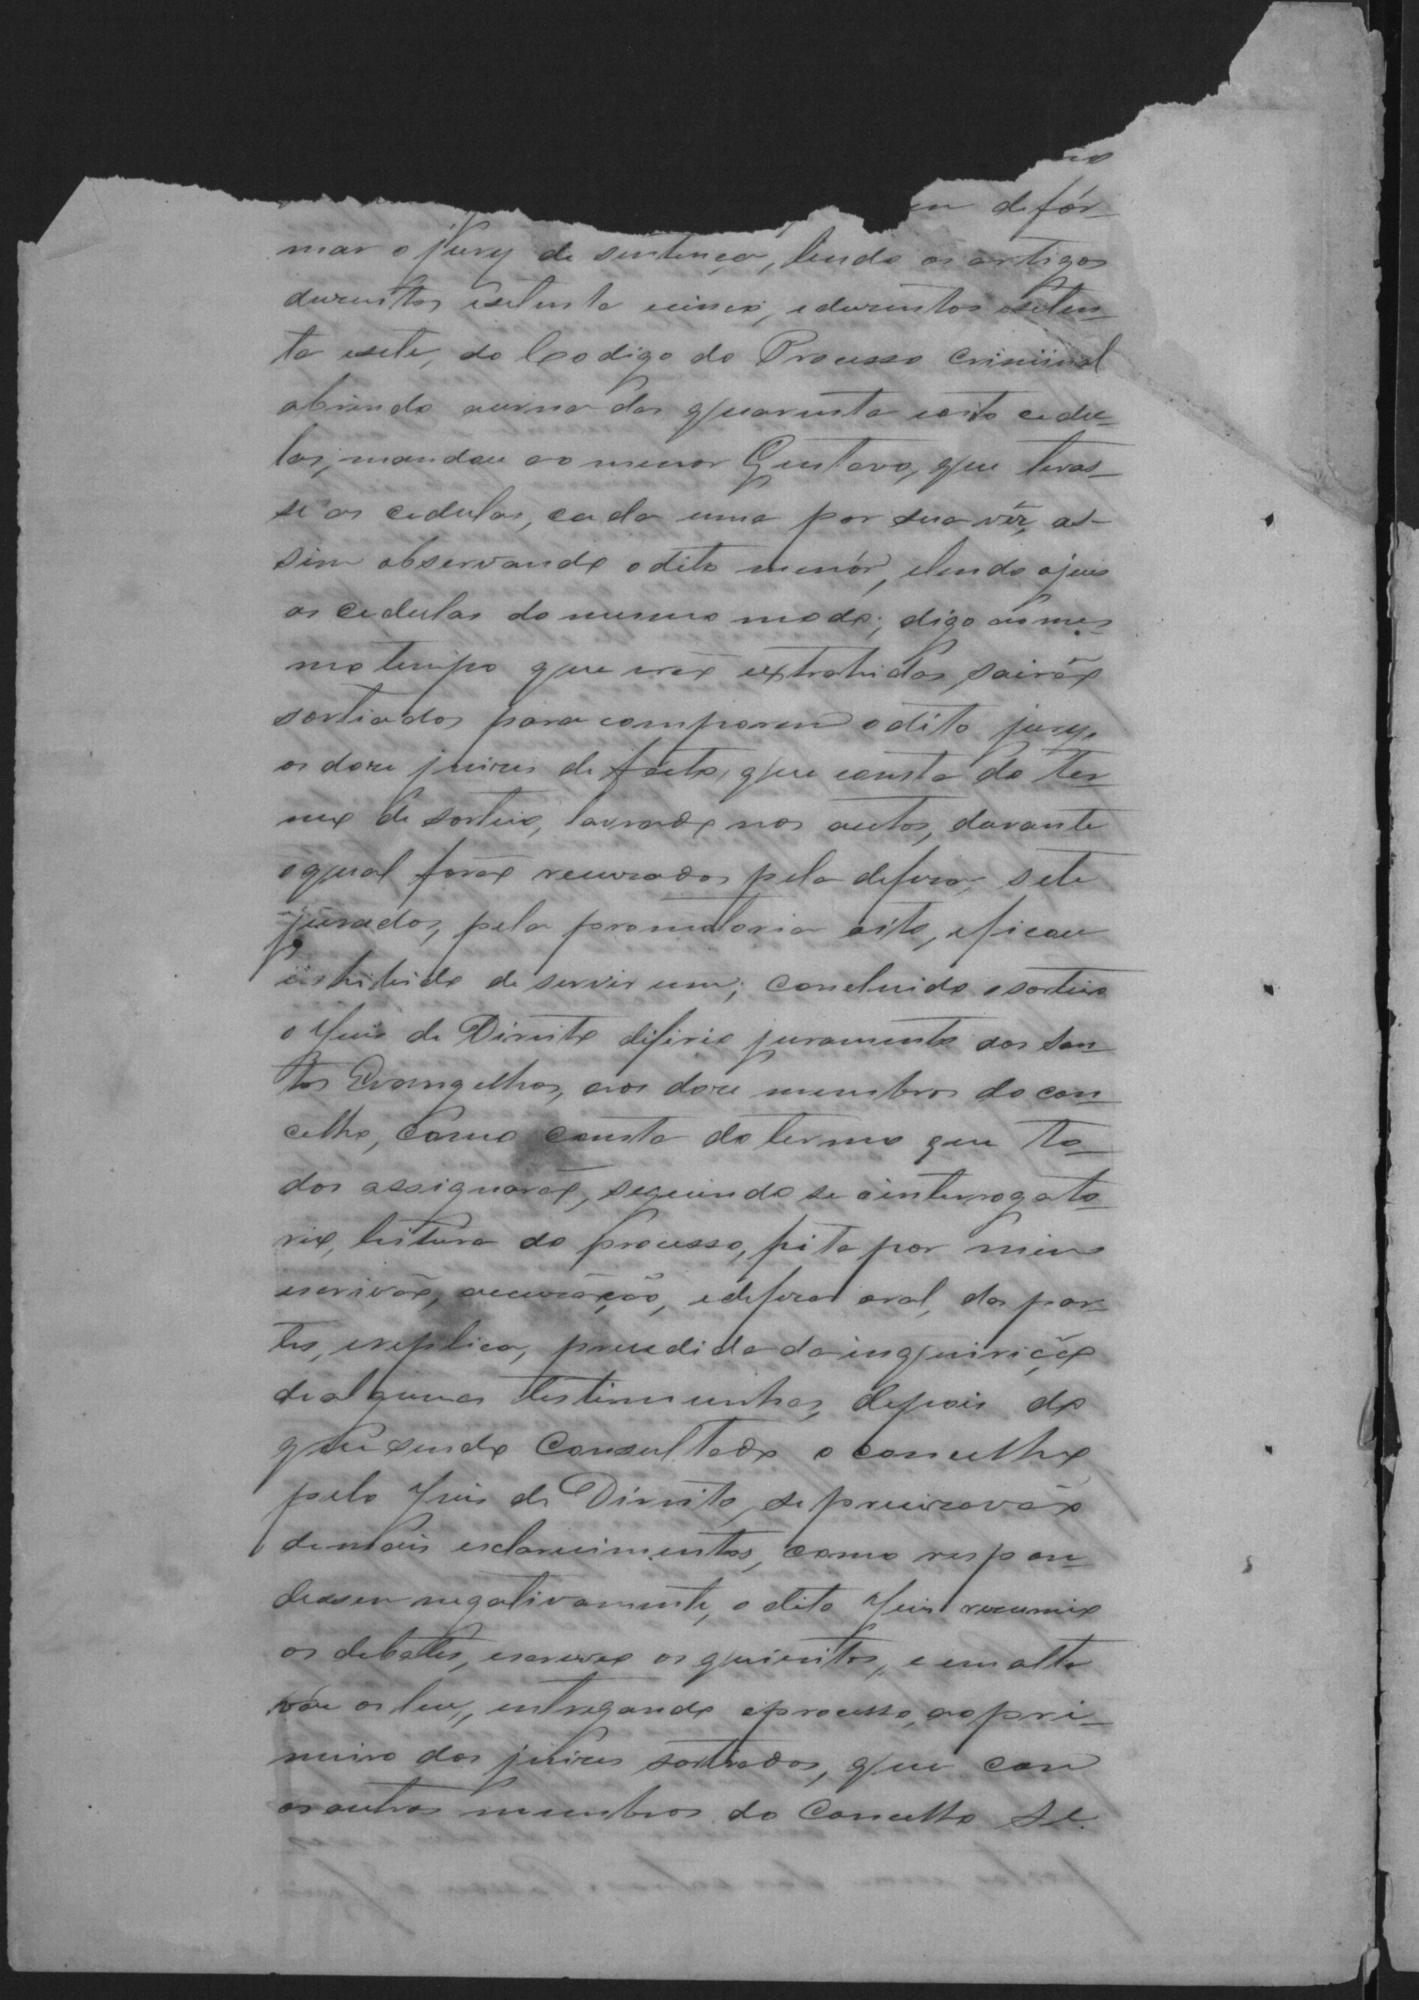 de fór-
mar o jury de sentença, lendo os artigos
duzentos esetenta ecinco, eduzentos esetен-
ta esete, do Codigo do Processo Criminal
abrindo aurna das quarenta eoito cedu-
las, mandou ao menor Gustavo, que tiras-
se as cedulas, cada uma por sua vêz, as-
sim observando odito menór, elendo ojuis
as cedulas do mesmo modo; digo ao mes-
mo tempo que erão extrahidas, sairão
sortiados para comporem odito jury,
os doze juizes de facto, que consta do ter-
mo de sorteio, lavrado nos autos, durante
oqual forão recuzados pela defeza, sete
jurados, pela promotoria oito, eficou
inhibido de servir um; concluido osorteio
o Juis de Direito diferio juramento dos San-
tos Evangelhos, aos doze membros do con-
celho, como consta do termo que to-
dos assignarão, seguindo se ointerrogato-
rio, leitura do processo, feita por mim
escrivão, accuzação, edefeza oral, das par-
tes, ereplica, precedida da inquirição
dealgumas testimunhas, depois do
que sendo consultado o concelho
pelo Juis de Direito, se precizavão
demais esclarecimentos, como respon-
dessem negativamente, o dito Juis rezumio
os debates, escreveo os quizitos, e em alta
vóz os leu, entregando oprocesso, ao pri-
meiro dos juizes sortiados, que com
osoutros membros do Concelho se